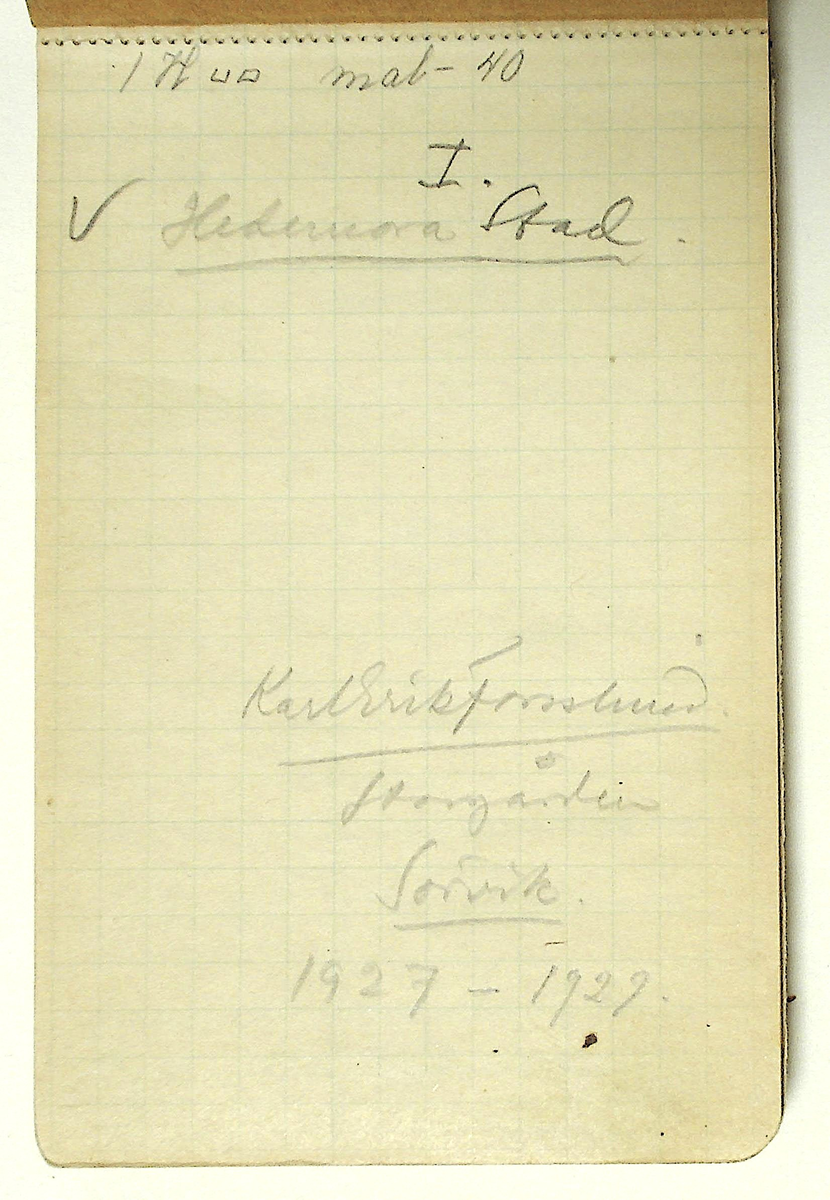 mat- 40
I.
V Hedemora Stad.
Karl Erik Forsslund.
Storgården
Sörvik.
1927 - 1929.